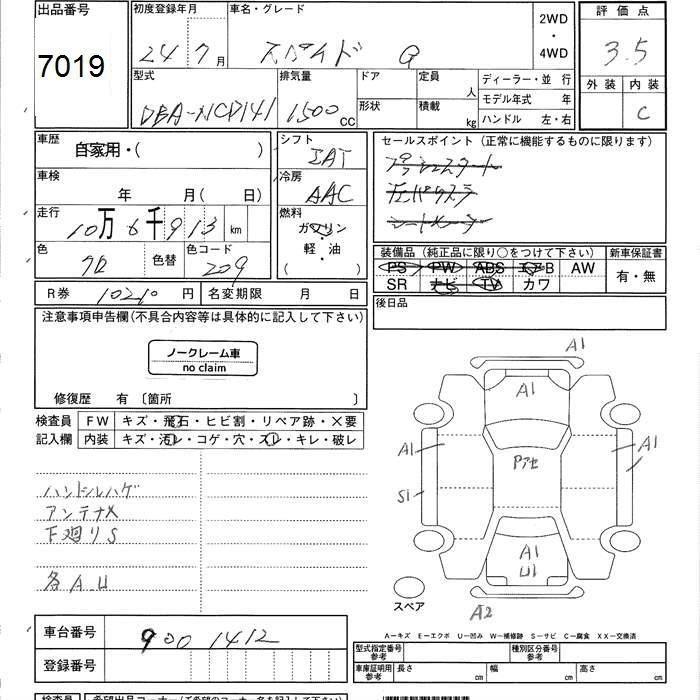 出品番号 初度登録年月 車名・グレード 2WD 評価点
7019 24 7月 スペイド G ・ 4WD 3.5
型式 排気量 ドア 定員 人 ディーラー・並行 外装 内装
DBA-NCP141 1500cc 形状 積載 kg モデル年式 年 C
ハンドル 左・右
車歴 自家用・( ) シフト IAT セールスポイント(正常に機能するものに限ります)
プッシュスタート
車検 年 月(日) 冷房 AAC 左Pスラ
シートメーター
走行 10万6千913km 燃料 ガソリン・軽・油( )
色 クロ 色替 色コード 209 装備品(純正品に限り○をつけて下さい) 新車保証書
PS PW ABS エアB AW 有・無
R券 10210円 名変期限 月 日 SR ナビ TV カワ
後日品
注意事項申告欄(不具合内容等は具体的に記入して下さい)
ノークレーム車
no claim
修復歴 有〔箇所 〕
検査員 FW キズ・飛石・ヒビ割・リペア跡・X要
記入欄 内装 キズ・汚レ・コゲ・穴・スレ・キレ・破レ
ハンドルハゲ
アンテナX
下廻りS
各A.U
A1
A1
A1 Pアセ A1
S1
A1
U1
スペア A2
A―キズ E―エクボ U―凹み W―補修跡 S―サビ C―腐食 XX―交換済
車台番号 900 1412
登録番号
型式指定番号 参考 種別区分番号 参考
車庫証明用 参考 長さ cm 幅 cm 高さ cm